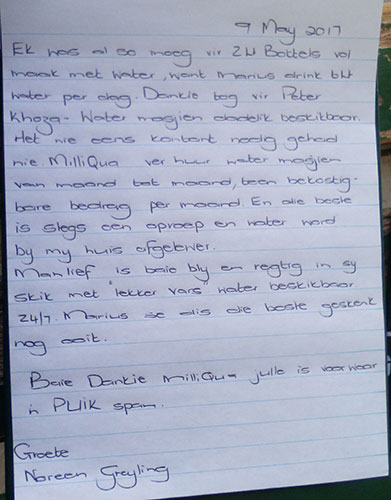 9 May 2017
Ek was al so moeg vir 2Lt Bottels vol
maak met water, want Marius drink 6Lt
water per dag. Dankie tog vir Peter
Khoza - Water masjien dadelik beskikbaar.
Het nie eens kontant nodig gehad
nie. MilliQua verhuur water masjien
van maand tot maand, teen bekostig-
bare bedrag per maand. En die beste
is slegs een oproep en water word
by my huis afgelewer.
Manlief is baie bly en regtig in sy
skik met "lekker vars" water beskikbaar
24/7. Marius sê dis die beste geskenk
nog ooit.
Baie Dankie MilliQua julle is voorwaar
'n PUIK span.
Groete
Noreen Greyling